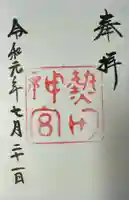 奉拝
熱田神宮
令和元年七月二十一日